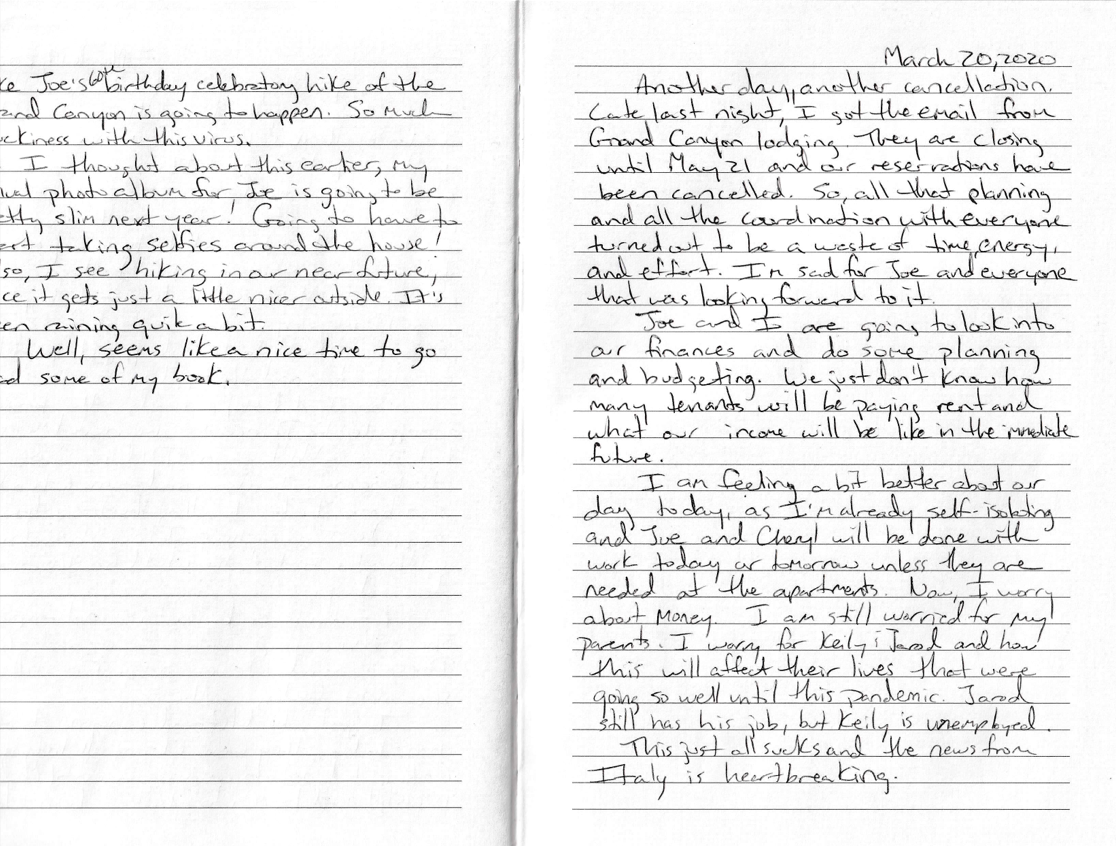 ke Joe's 60th birthday celebratory hike of the
and Canyon is going to happen. So much
uckiness with this virus.
I thought about this earlier, my
ual photo album for Joe is going to be
etty slim next year! Going to have to
art taking selfies around the house!
so, I see hiking in our near future,
ce it gets just a little nicer outside. It's
en raining quite a bit.
Well, seems like a nice time to go
ad some of my book.
March 20, 2020
Another day, another cancellation.
Late last night, I got the email from
Grand Canyon lodging. They are closing
until May 21 and our reservations have
been cancelled. So, all that planning
and all the coordination with everyone
turned out to be a waste of time, energy,
and effort. I'm sad for Joe and everyone
that was looking forward to it.
Joe and I are going to look into
our finances and do some planning
and budgeting. We just don't know how
many tenants will be paying rent and
what our income will be like in the immediate
future.
I am feeling a bit better about our
day today, as I'm already self-isolating
and Joe and Cheryl will be done with
work today or tomorrow unless they are
needed at the apartments. Now, I worry
about money. I am still worried for my
parents. I worry for Keily & Jarod and how
this will affect their lives that were
going so well until this pandemic. Jarod
still has his job, but Keily is unemployed.
This just all sucks and the news from
Italy is heartbreaking.